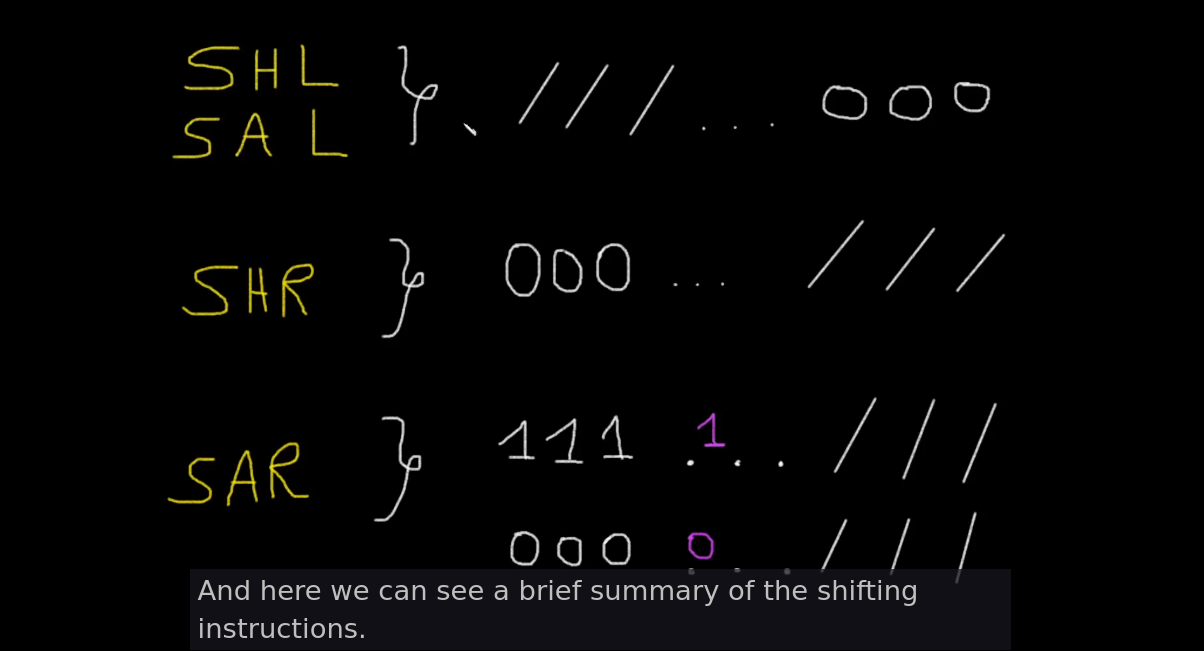 SHL } / / / ... 0 0 0
SAL
SHR } 000 ... / / /
SAR } 111 1... / / /
000 0... / / /
And here we can see a brief summary of the shifting
instructions.